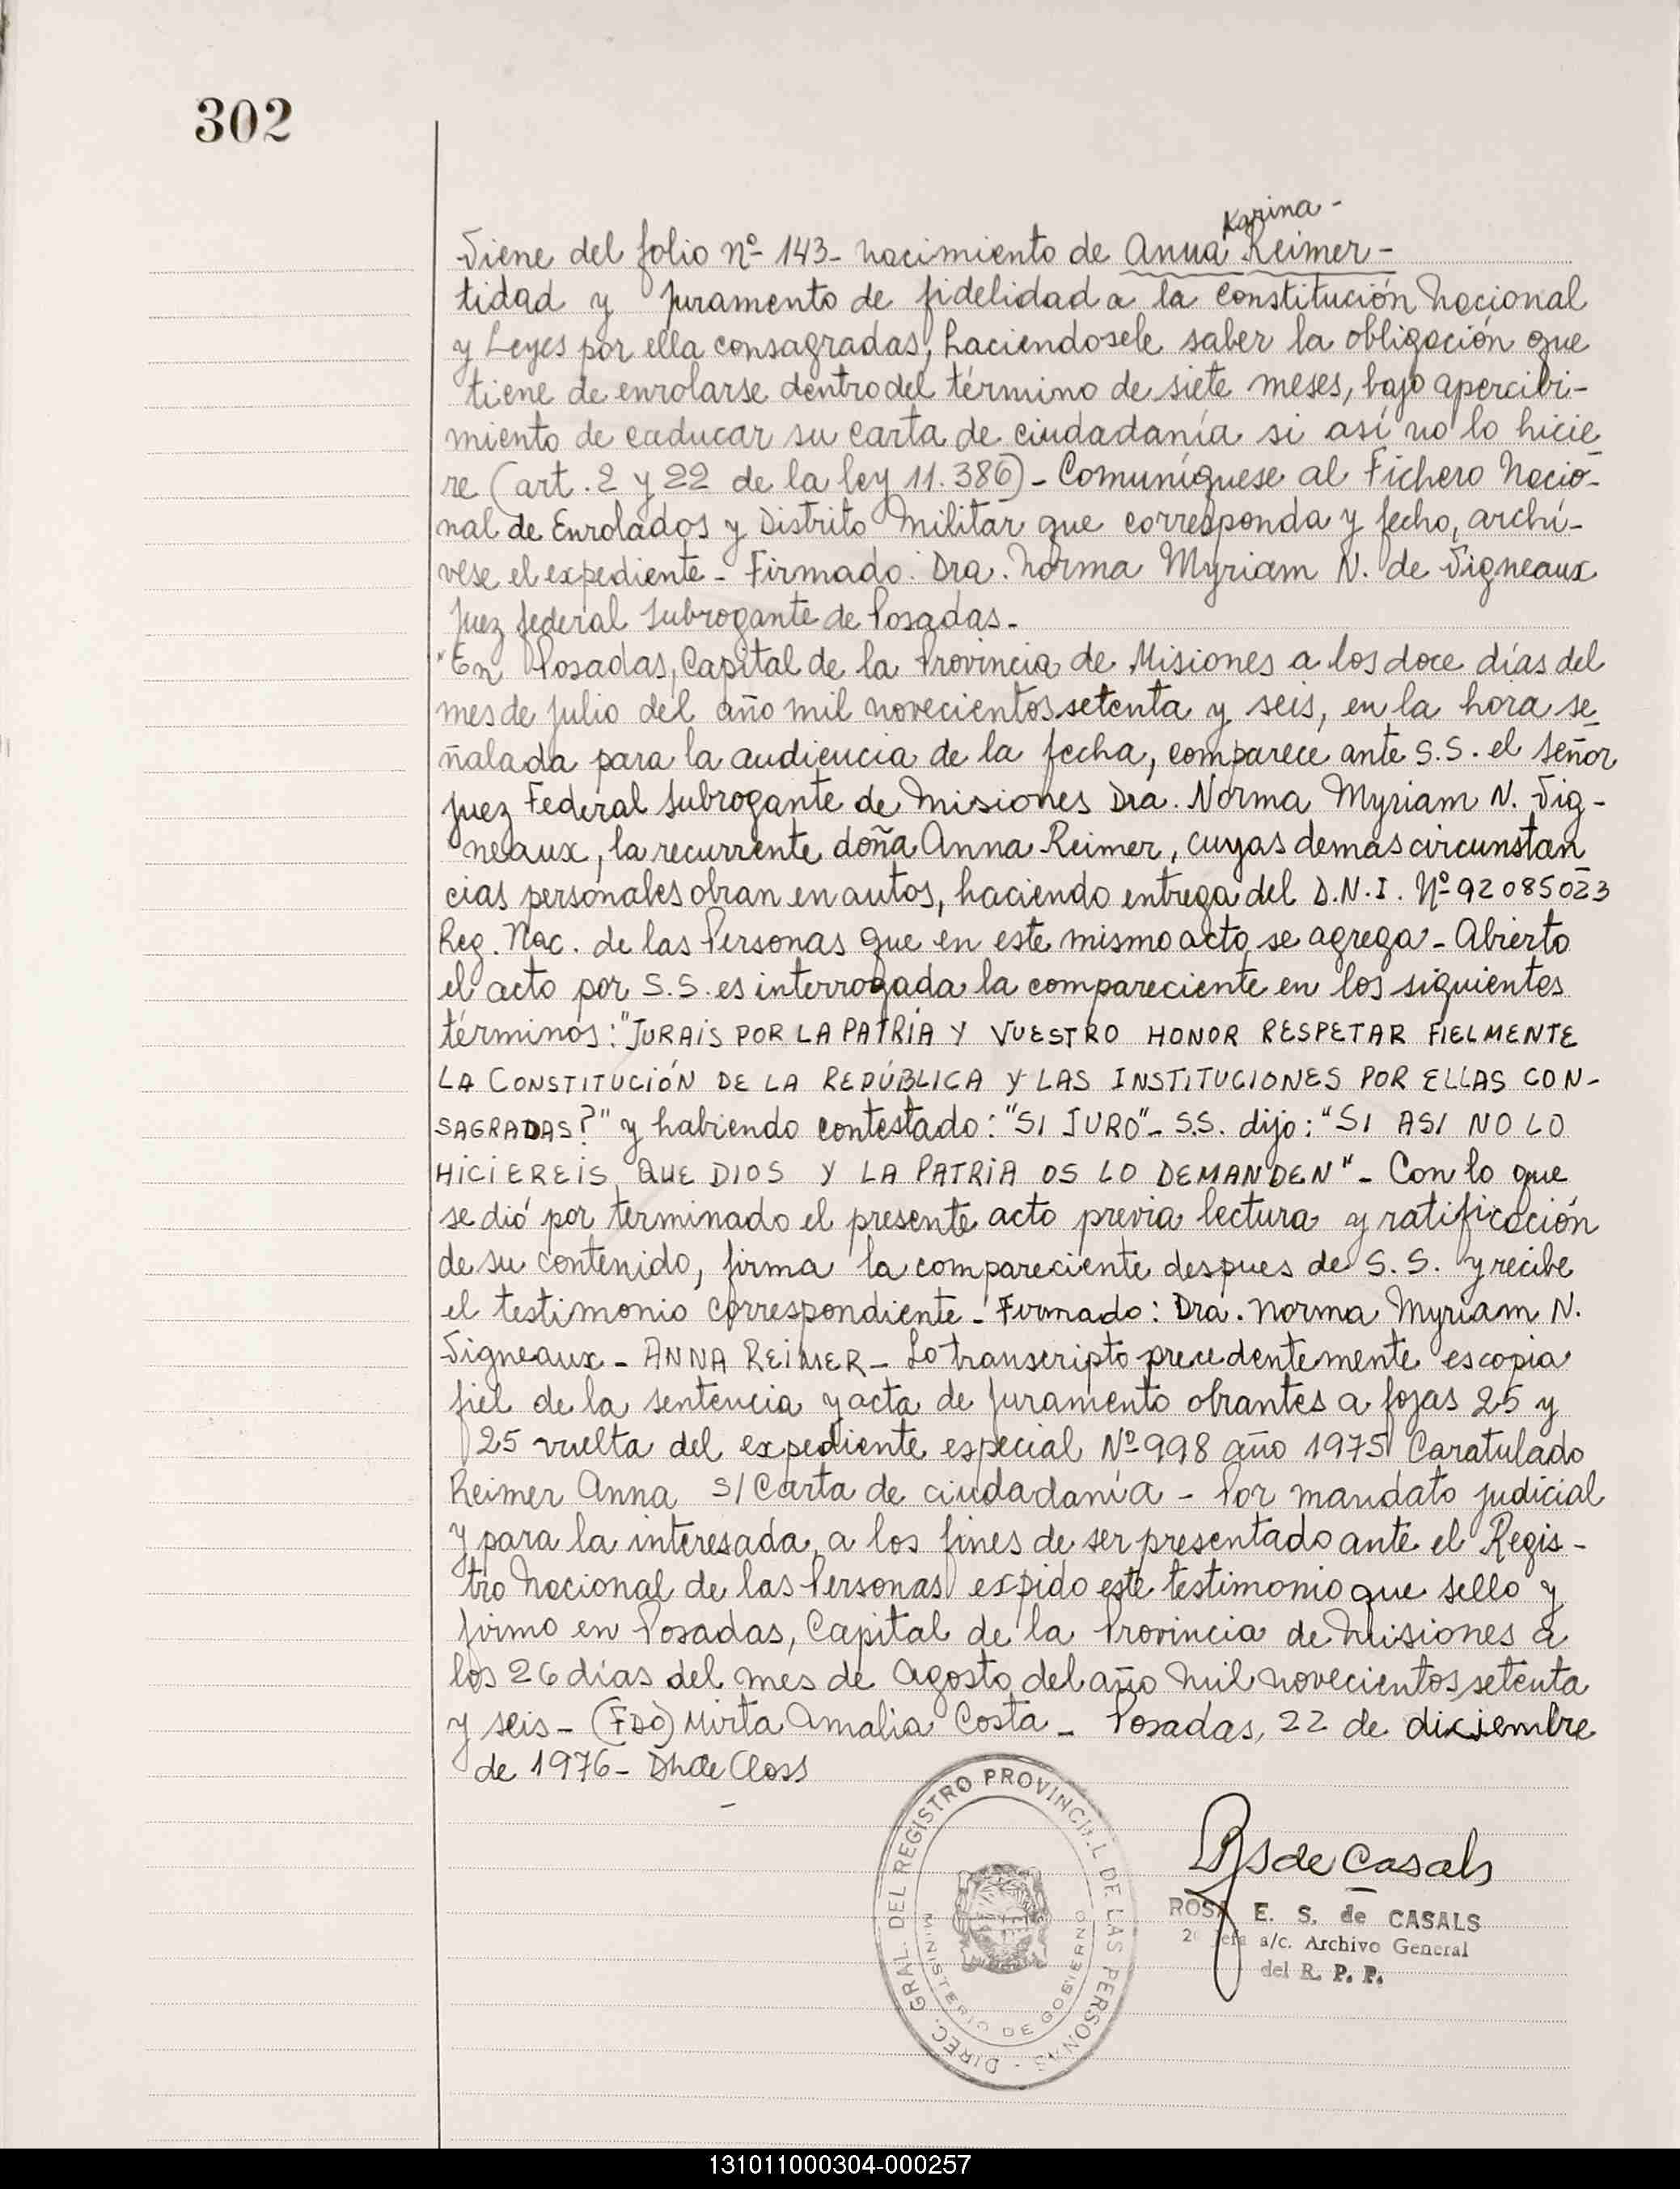 302
Karina -
Viene del folio Nº 143 - nacimiento de Anna Reimer -
tidad y juramento de fidelidad a la Constitución Nacional
y Leyes por ella consagradas, haciendosele saber la obligación que
tiene de enrolarse dentro del término de siete meses, bajo apercibi-
miento de caducar su carta de ciudadanía si así no lo hicie
re (art. 2 y 22 de la ley 11.386) - Comuníquese al Fichero Nacio-
nal de Enrolados y Distrito Militar que corresponda y fecho, archí-
vese el expediente - Firmado: Dra. Norma Myriam N. de Vigneaux
Juez federal Subrogante de Posadas -
"En Posadas, Capital de la Provincia de Misiones a los doce días del
mes de julio del año mil novecientos setenta y seis, en la hora se
ñalada para la audiencia de la fecha, comparece ante S.S. el señor
Juez Federal Subrogante de Misiones Dra. Norma Myriam N. Vig-
neaux, la recurrente doña Anna Reimer, cuyas demás circunstan
cias personales obran en autos, haciendo entrega del D.N.I. Nº 92085023
Reg. Nac. de las Personas que en este mismo acto se agrega - Abierto
el acto por S.S. es interrogada la compareciente en los siguientes
términos: "JURAIS POR LA PATRIA Y VUESTRO HONOR RESPETAR FIELMENTE
LA CONSTITUCIÓN DE LA REPÚBLICA Y LAS INSTITUCIONES POR ELLAS CON-
SAGRADAS?" y habiendo contestado: "SI JURO" - S.S. dijo: "SI ASI NO LO
HICIEREIS QUE DIOS Y LA PATRIA OS LO DEMANDEN" - Con lo que
se dió por terminado el presente acto previa lectura y ratificación
de su contenido, firma la compareciente despues de S.S. y recibe
el testimonio correspondiente - Firmado: Dra. Norma Myriam N.
Vigneaux - ANNA REIMER - Lo transcripto precedentemente es copia
fiel de la sentencia y acta de juramento obrantes a fojas 25 y
25 vuelta del expediente especial Nº 998 año 1975 Caratulado
Reimer Anna S/ Carta de ciudadanía - Por mandato judicial
y para la interesada, a los fines de ser presentado ante el Regis-
tro Nacional de las Personas expido este testimonio que sello y
firmo en Posadas, Capital de la Provincia de Misiones a
los 26 días del mes de Agosto del año mil novecientos setenta
y seis - (FDO) Mirta Amalia Costa - Posadas, 22 de diciembre
de 1976 - de Closs
DIREC. GRAL. DEL REGISTRO PROVINCIAL DE LAS PERSONAS
MINISTERIO DE GOBIERNO
RS de Casals
ROSA E. S. de CASALS
2º Jefe a/c. Archivo General
del R. P. P.
131011000304-000257